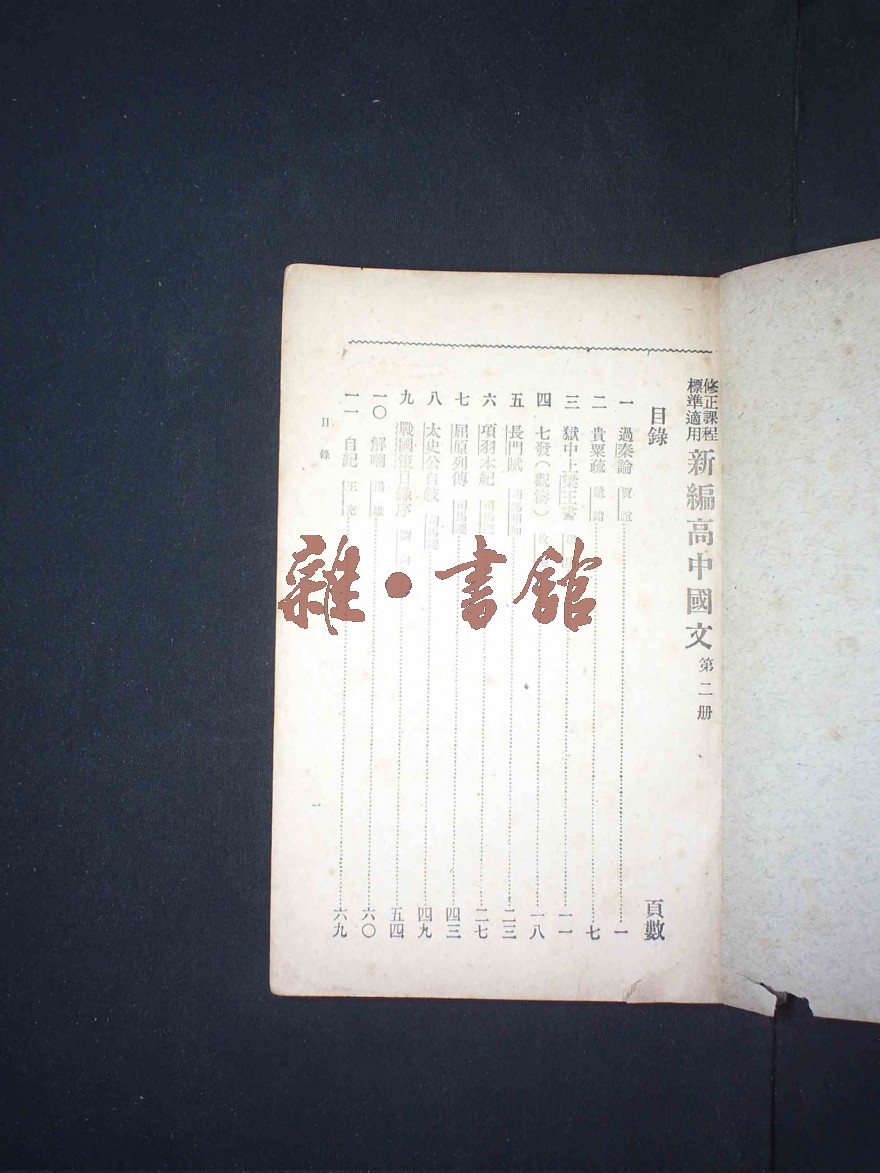 修正課程
標準適用
新編高中國文 第二册
目錄 頁數
一 過秦論 賈誼 一
二 貴粟疏 鼂錯 七
三 獄中上梁王書 一一
四 七發(觀濤) 枚 一八
五 長門賦 司馬相如 二三
六 項羽本紀 司馬遷 二七
七 屈原列傳 司馬遷 四三
八 太史公自敍 司馬遷 四九
九 戰國策目錄序 劉向 五四
一〇 解嘲 揚雄 六〇
一一 自紀 王充 六九
目錄
一
雜·書館